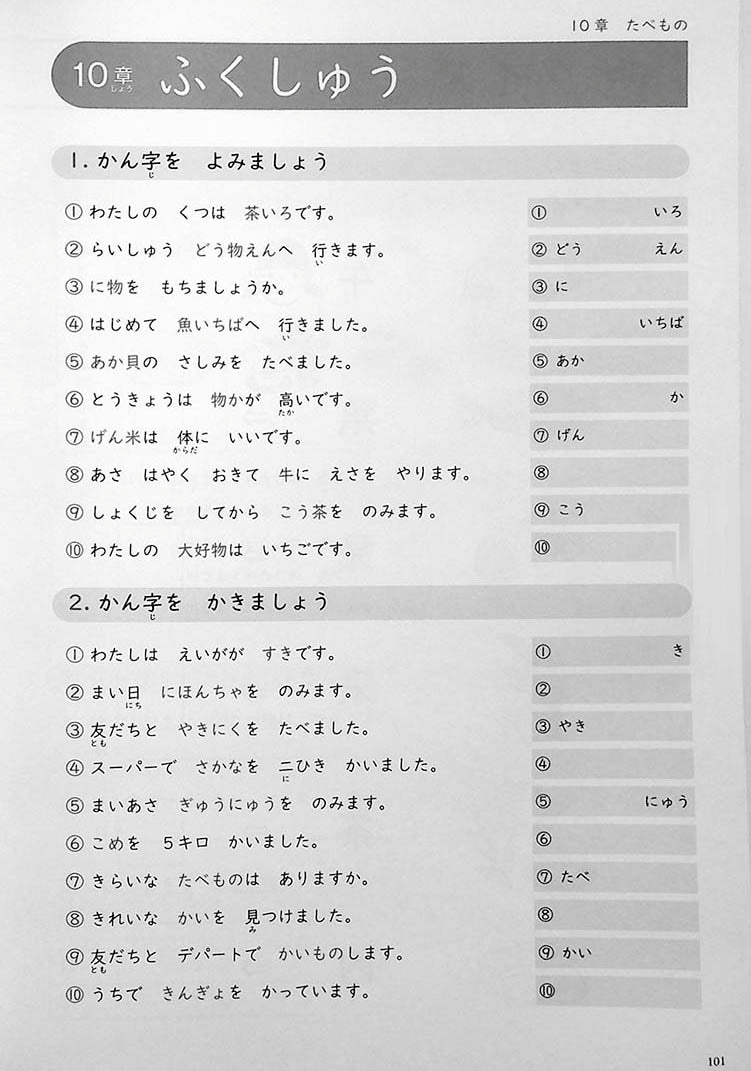 10章　たべもの
10章　ふくしゅう
しょう
1. かん字を　よみましょう
じ
①わたしの　くつは　茶いろです。　①　いろ
②らいしゅう　どう物えんへ　行きます。　②どう　えん
い
③に物を　もちましょうか。　③に
④はじめて　魚いちばへ　行きました。　④　いちば
い
⑤あか貝の　さしみを　たべました。　⑤あか
⑥とうきょうは　物かが　高いです。　⑥　か
たか
⑦げん米は　体に　いいです。　⑦げん
からだ
⑧あさ　はやく　おきて　牛に　えさを　やります。　⑧
⑨しょくじを　してから　こう茶を　のみます。　⑨こう
⑩わたしの　大好物は　いちごです。　⑩
2. かん字を　かきましょう
じ
①わたしは　えいがが　すきです。　①　き
②まい日　にほんちゃを　のみます。　②
にち
③友だちと　やきにくを　たべました。　③やき
とも
④スーパーで　さかなを　二ひき　かいました。　④
に
⑤まいあさ　ぎゅうにゅうを　のみます。　⑤　にゅう
⑥こめを　5キロ　かいました。　⑥
⑦きらいな　たべものは　ありますか。　⑦たべ
⑧きれいな　かいを　見つけました。　⑧
み
⑨友だちと　デパートで　かいものします。　⑨かい
とも
⑩うちで　きんぎょを　かっています。　⑩
101